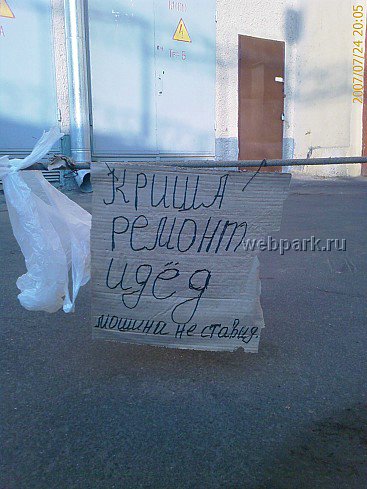 2007/07/24 20:05
КРИША
РЕМОНТ
идёд
мошина не ставид.
webpark.ru